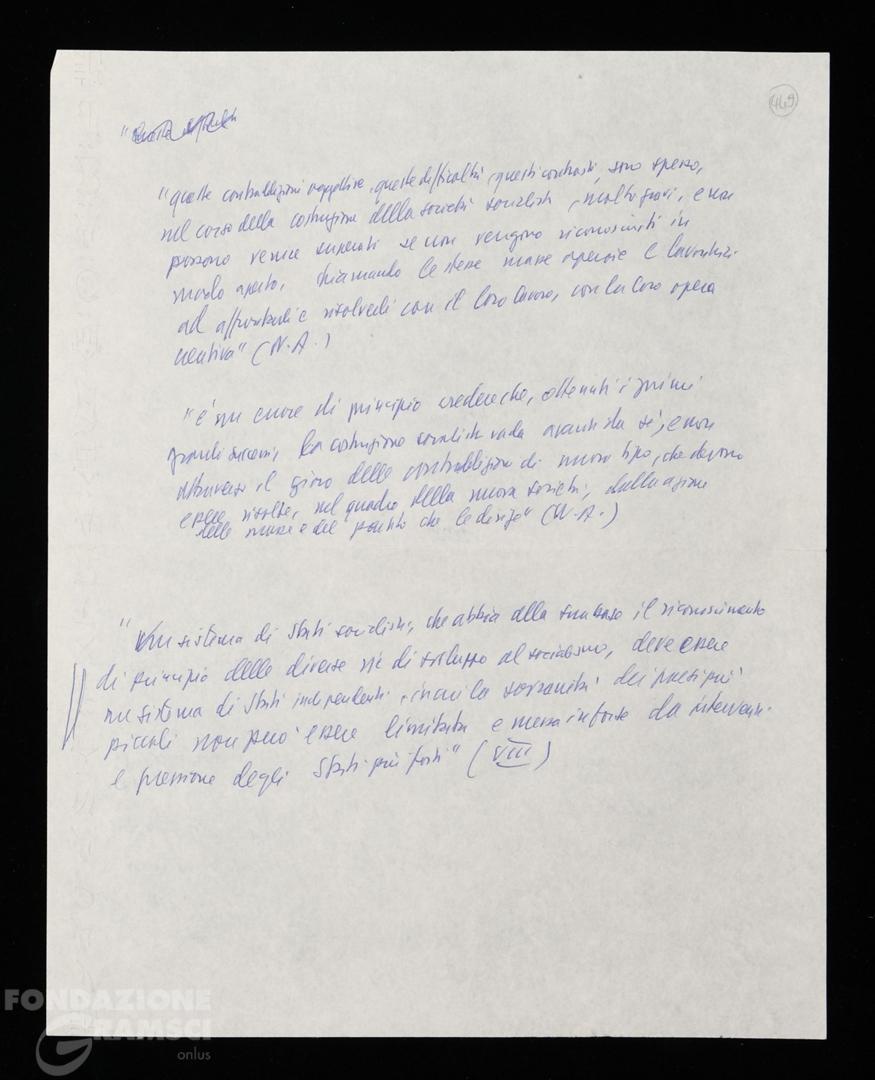 449
"queste contraddizioni oggettive, queste difficoltà, questi contrasti, sono spesso,
nel corso della costruzione della società socialista, molto gravi, e non
possono venire superati se non vengono riconosciuti in
modo aperto, chiamando le stesse masse operaie e lavoratrici
ad affrontarli e risolverli con il loro lavoro, con la loro opera
creativa" (N.A.)
"è un errore di principio credere che, ottenuti i primi
grandi successi, la costruzione socialista vada avanti da sé, e non
attraverso il gioco delle contraddizioni di nuovo tipo, che devono
essere risolte, nel quadro della nuova società, dalla azione
delle masse e del partito che le dirige" (N.A.)
"Un sistema di Stati socialisti, che abbia alla sua base il riconoscimento
di principio delle diverse vie di sviluppo al socialismo, deve essere
un sistema di Stati indipendenti, in cui la sovranità dei paesi più
piccoli non può essere limitata e messa in forse da interventi
e pressione degli Stati più forti" (VIII)
FONDAZIONE
GRAMSCI
onlus